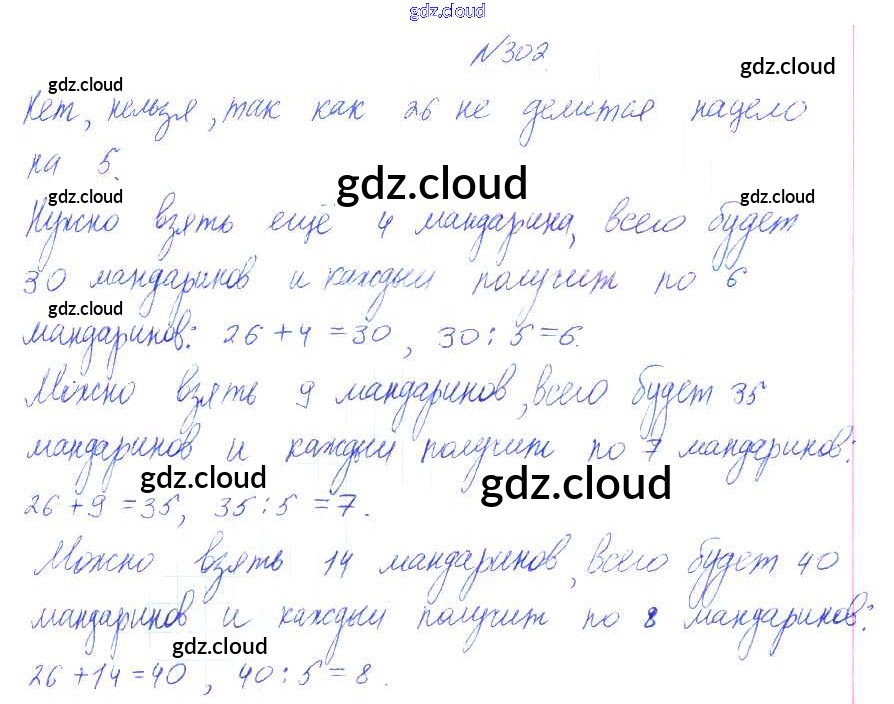 gdz.cloud
№302.
gdz.cloud
gdz.cloud
Нет, нельзя, так как 26 не делится нацело
на 5.
gdz.cloud
gdz.cloud
gdz.cloud
Нужно взять ещё 4 мандарина, всего будет
30 мандаринов и каждый получит по 6
gdz.cloud
мандаринов: 26+4=30, 30:5=6.
Можно взять 9 мандаринов, всего будет 35
мандаринов и каждый получит по 7 мандаринов:
gdz.cloud
gdz.cloud
26+9=35, 35:5=7.
Можно взять 14 мандаринов, всего будет 40
мандаринов и каждый получит по 8 мандаринов:
gdz.cloud
26+14=40, 40:5=8.